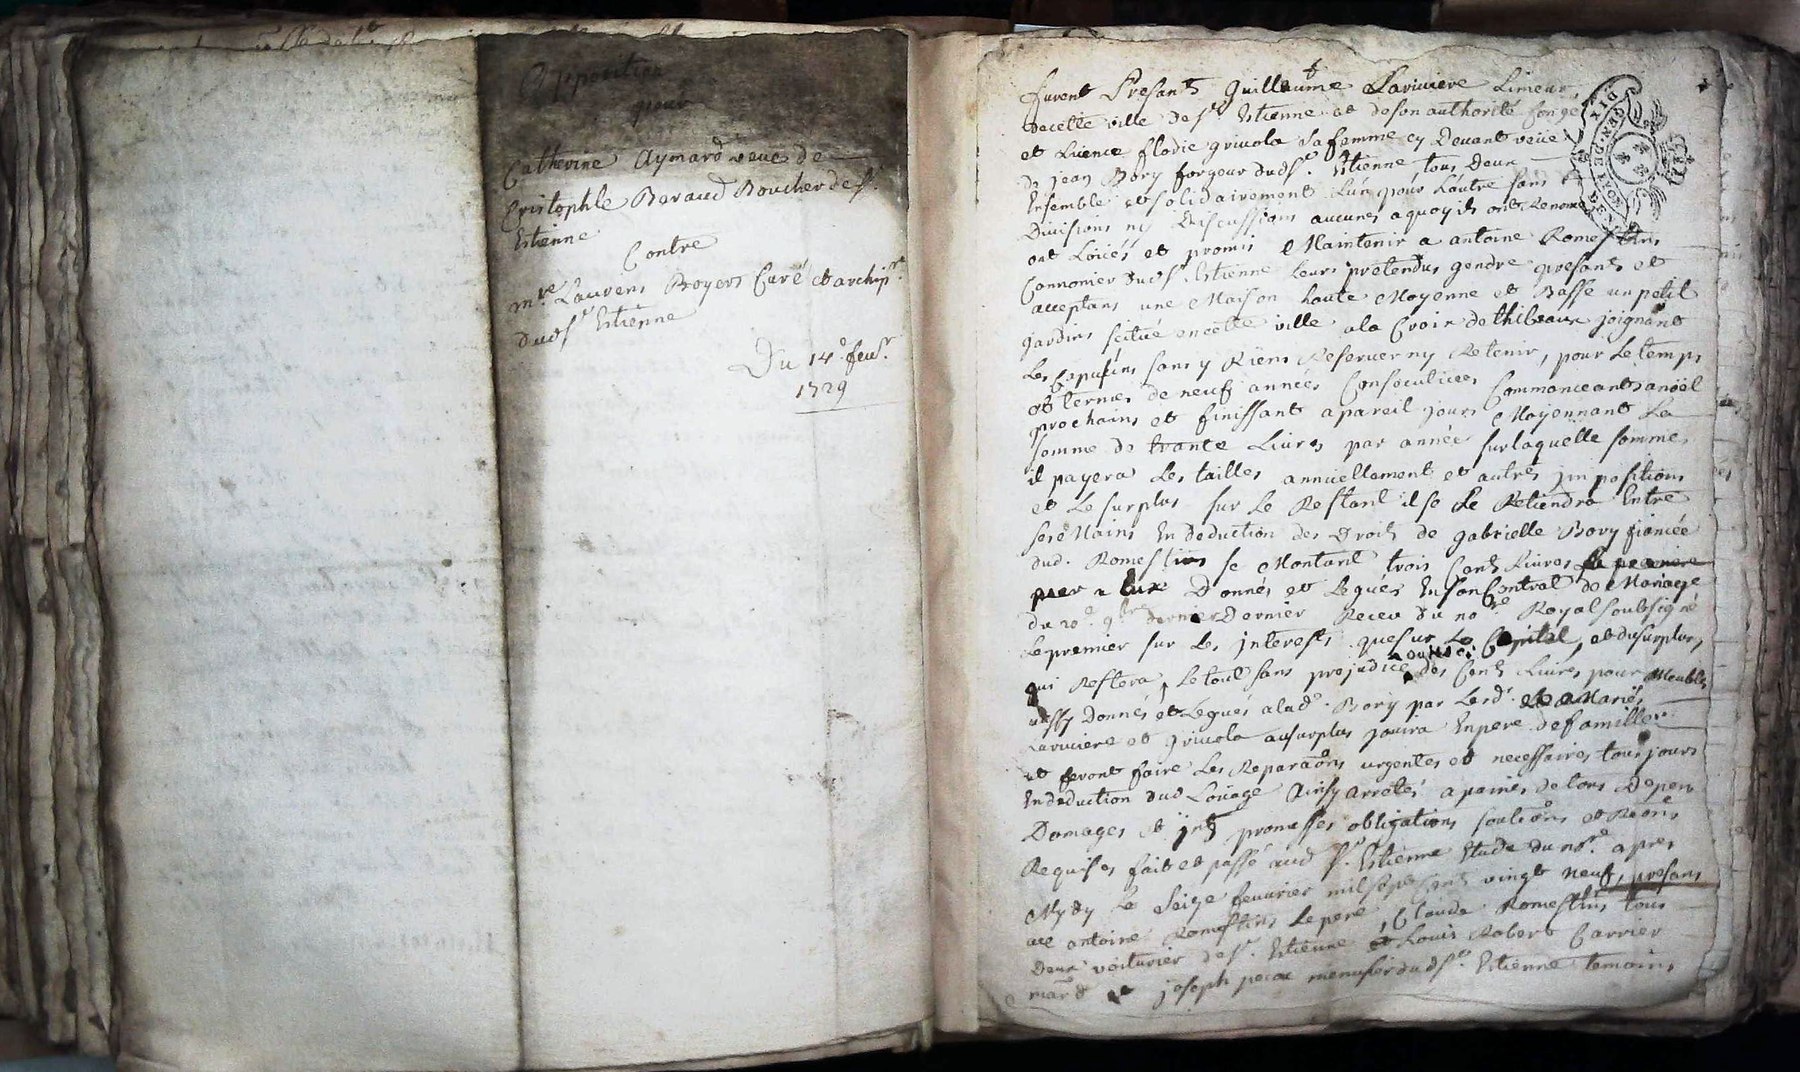 Opposition
pour
Catherine Aymard veuve de
Cristophle Beraud Boucher de St.
Estienne
Contre
mre. Laurens Boyers Curé et archiptre.
dudst Estienne
Du 14e. feur.
1729
furent Presants Guillaume Lariviere Limeur,
decette ville de st Estienne et deson authorité
et Licence flodie grivola sa femme cy Devant veüe
de jean Bory forgeur dudst. Estienne tous Deux
Ensemble et solidairement L'un pour L'autre sans
Divisions ny Discussions aucunes aquoy ils ont Renoncé
ont Loüés et promis Maintenir a antoine Romestins
Cannonier dudst. Estienne Leurs pretendus gendre presant et
acceptans une Maison haute Moyenne et Basse un petit
jardins scitué encette ville ala Croix de thibeaux joignant
Les Capucins sans y Riens Reserver ny Retenir, pour Le temps
et termes de neuf années Consecutives Commenceants anoël
prochains et finissant apareil jours Moyennant La
somme de trante Livres par année surlaquelle somme
il payera Les tailles annuellement et autres impositions
et Le surplus sur Le Restant il se Le Retiendra Entre
ses Mains En deduction des Droits de gabrielle Bory fiancée
dud. Romestins se Montant trois Cents Livres
Donnés et Legués Enson Contrat de Mariage
du 20e. 9bre Dernier Receu du nore Royal soubsigné
Le premier sur Les interests que sur Le Capital, et du surplus,
qui Restera, Le tout sans prejudice des Cents Livres pour Meubles
aussy Donnés et Legués alade. Bory par Lesd. Mariés
Lariviere et grivola ausurplus jouira Enpere defamilles
et feront faire Les Reparaons urgentes et necessaires tous jours
Endeduction dud Loüage Ainsy arrotés apaines de tous Depens
Domages et jnts promesses obligations
Requises fait et passé aud st. Estienne Etude du nore. apres
Mydy Le seize fevurier milsept cents vingt neuf, presans
ace antoine Romestins Le pere, Claude Romestins tous
Deux voiturier de st. Estienne et Louis Robert Carrier
joseph menusier dudst. Estienne temoins